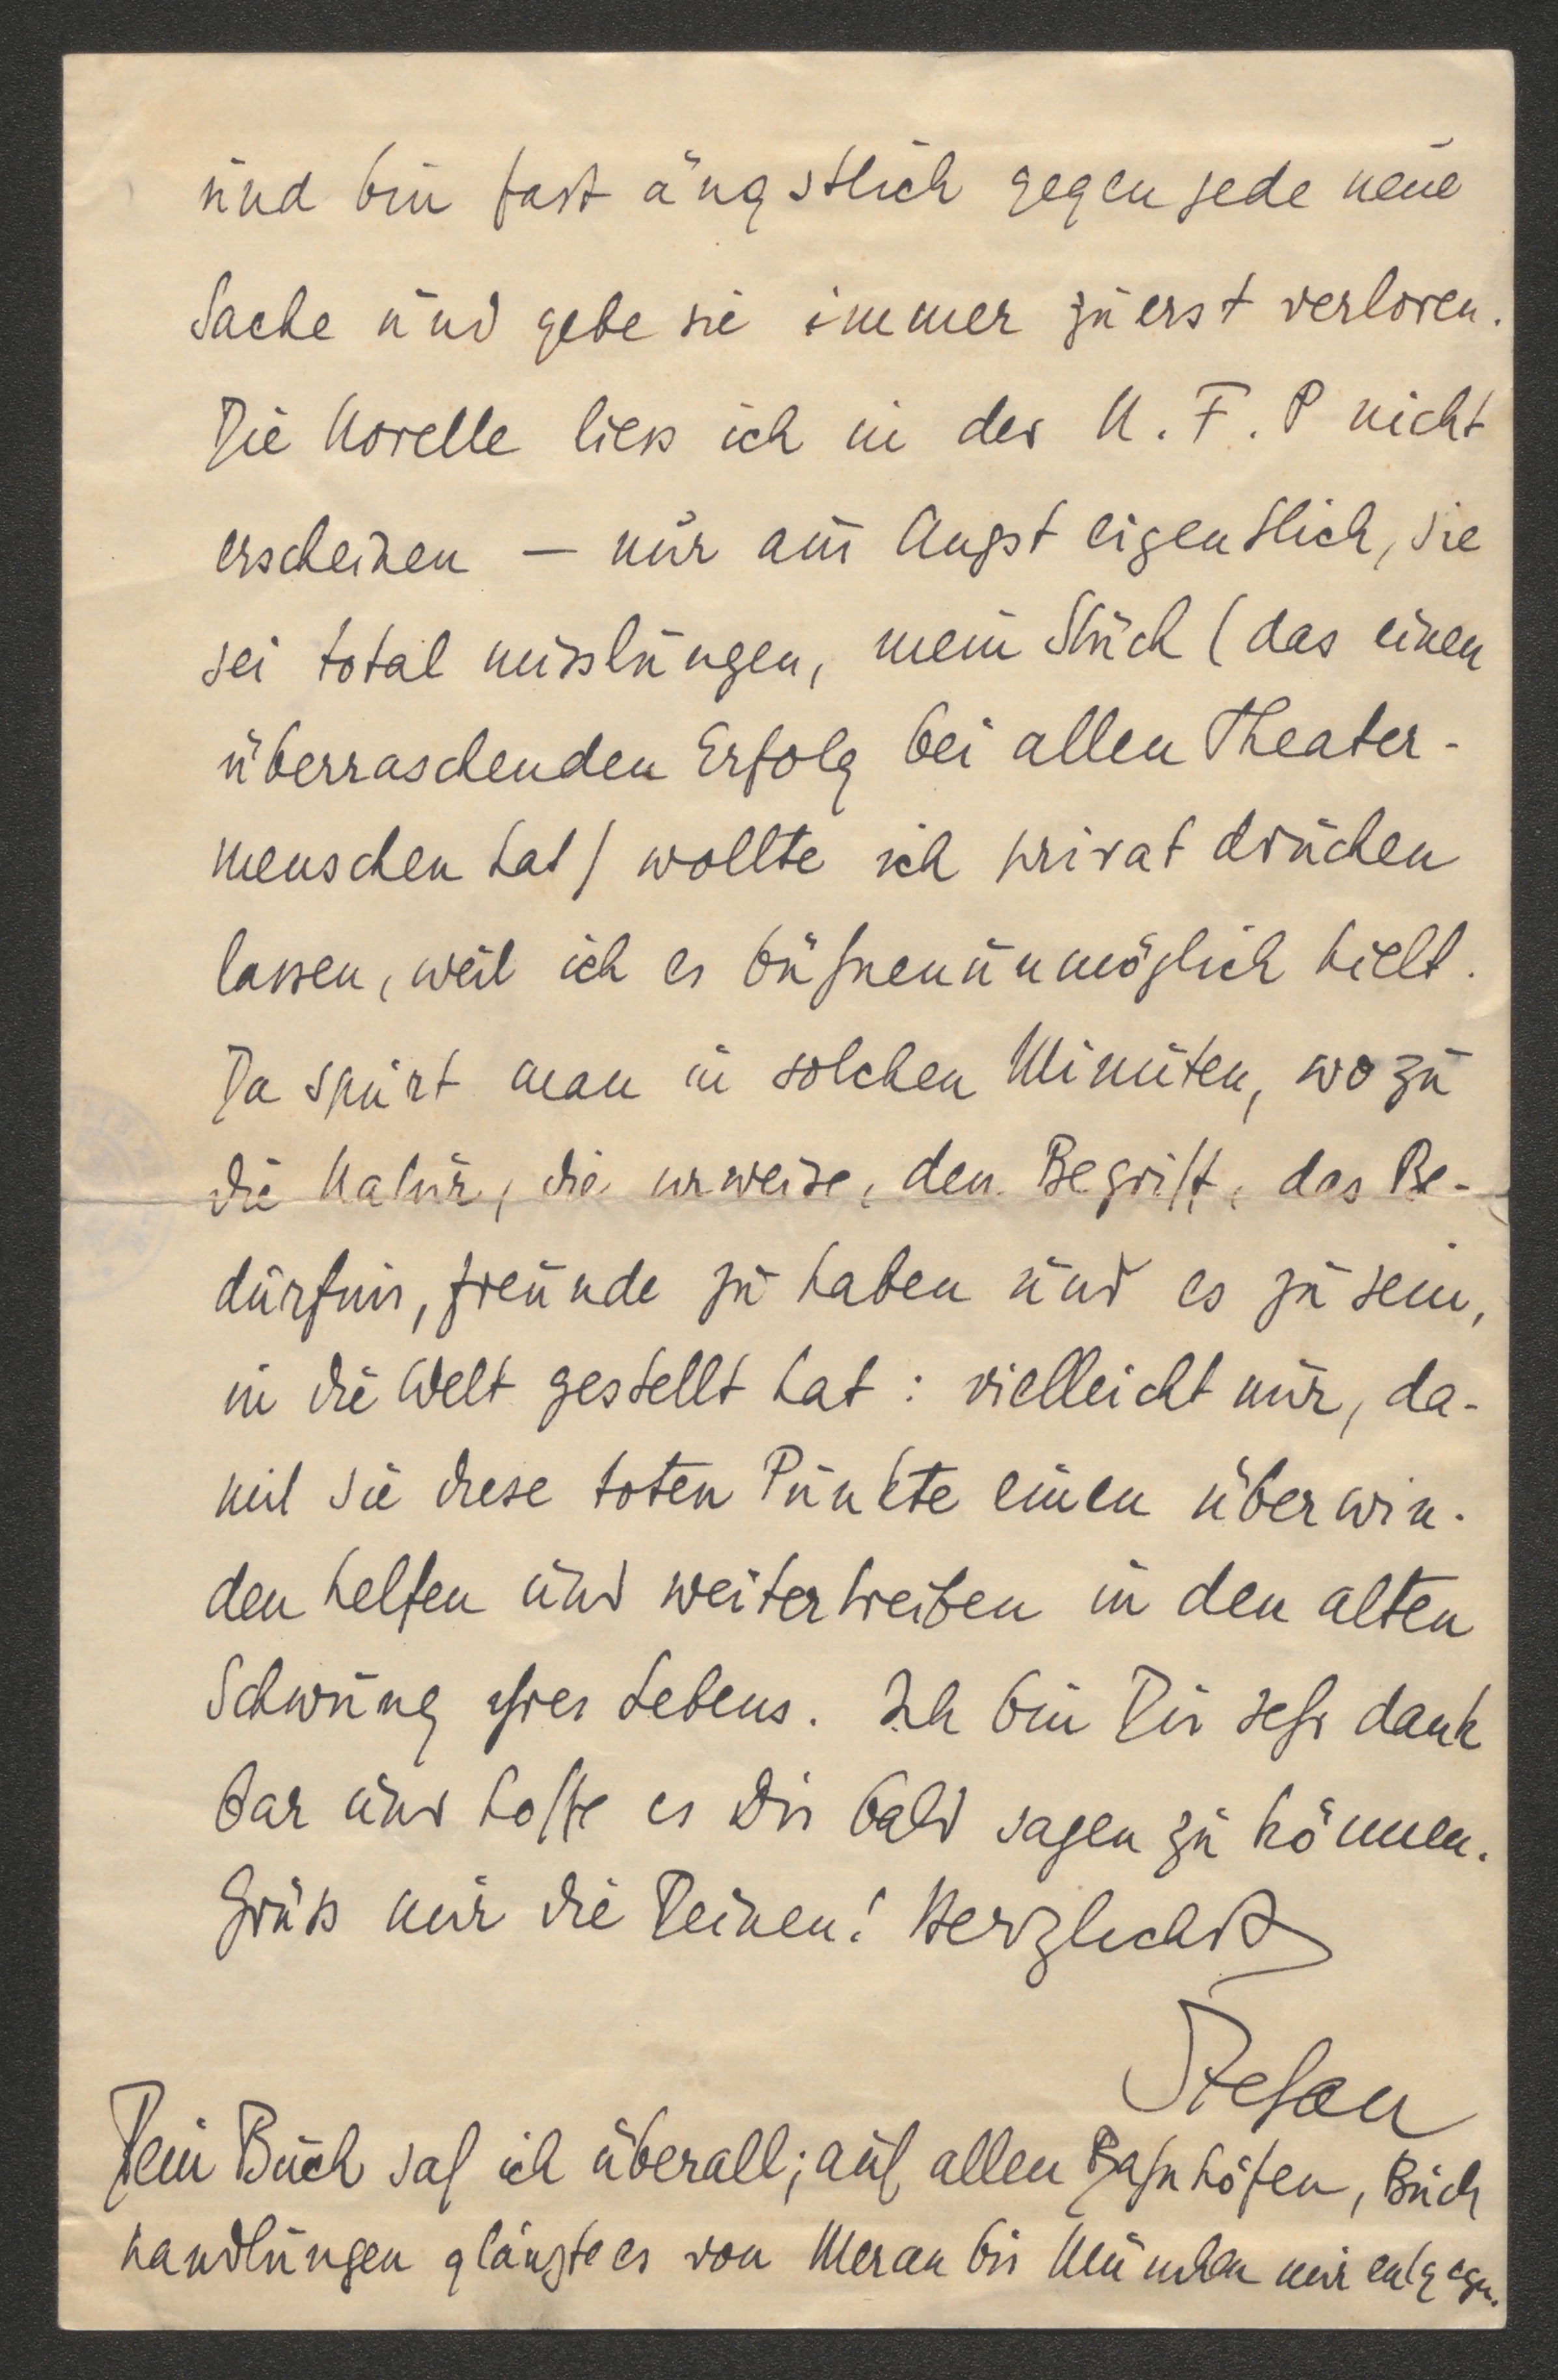 und bin fast ängstlich gegen jede neue
Sache und gebe sie immer zuerst verloren.
Die Novelle liess ich in der N. F. P nicht
erscheinen — nur aus Angst eigentlich, sie
sei total misslungen, mein Stück (das einen
überraschenden Erfolg bei allen Theater-
menschen hat) wollte ich privat drucken
lassen, weil ich es bühnenunmöglich hielt.
Da spürt man in solchen Minuten, wozu
die Natur, die urweise, den Begriff, das Be-
dürfnis, Freunde zu haben und es zu sein,
in die Welt gestellt hat: vielleicht nur, da-
mit sie diese toten Punkte einen überwin-
den helfen und weitertreiben in den alten
Schwung ihres Lebens. Ich bin Dir sehr dank
bar und hoffe es Dir bald sagen zu können.
Grüss mir die Deinen! Herzlichst
Stefan
Dein Buch sah ich überall; auf allen Bahnhöfen, Buch
handlungen glänzte es von Meran bis München mir entgegen.